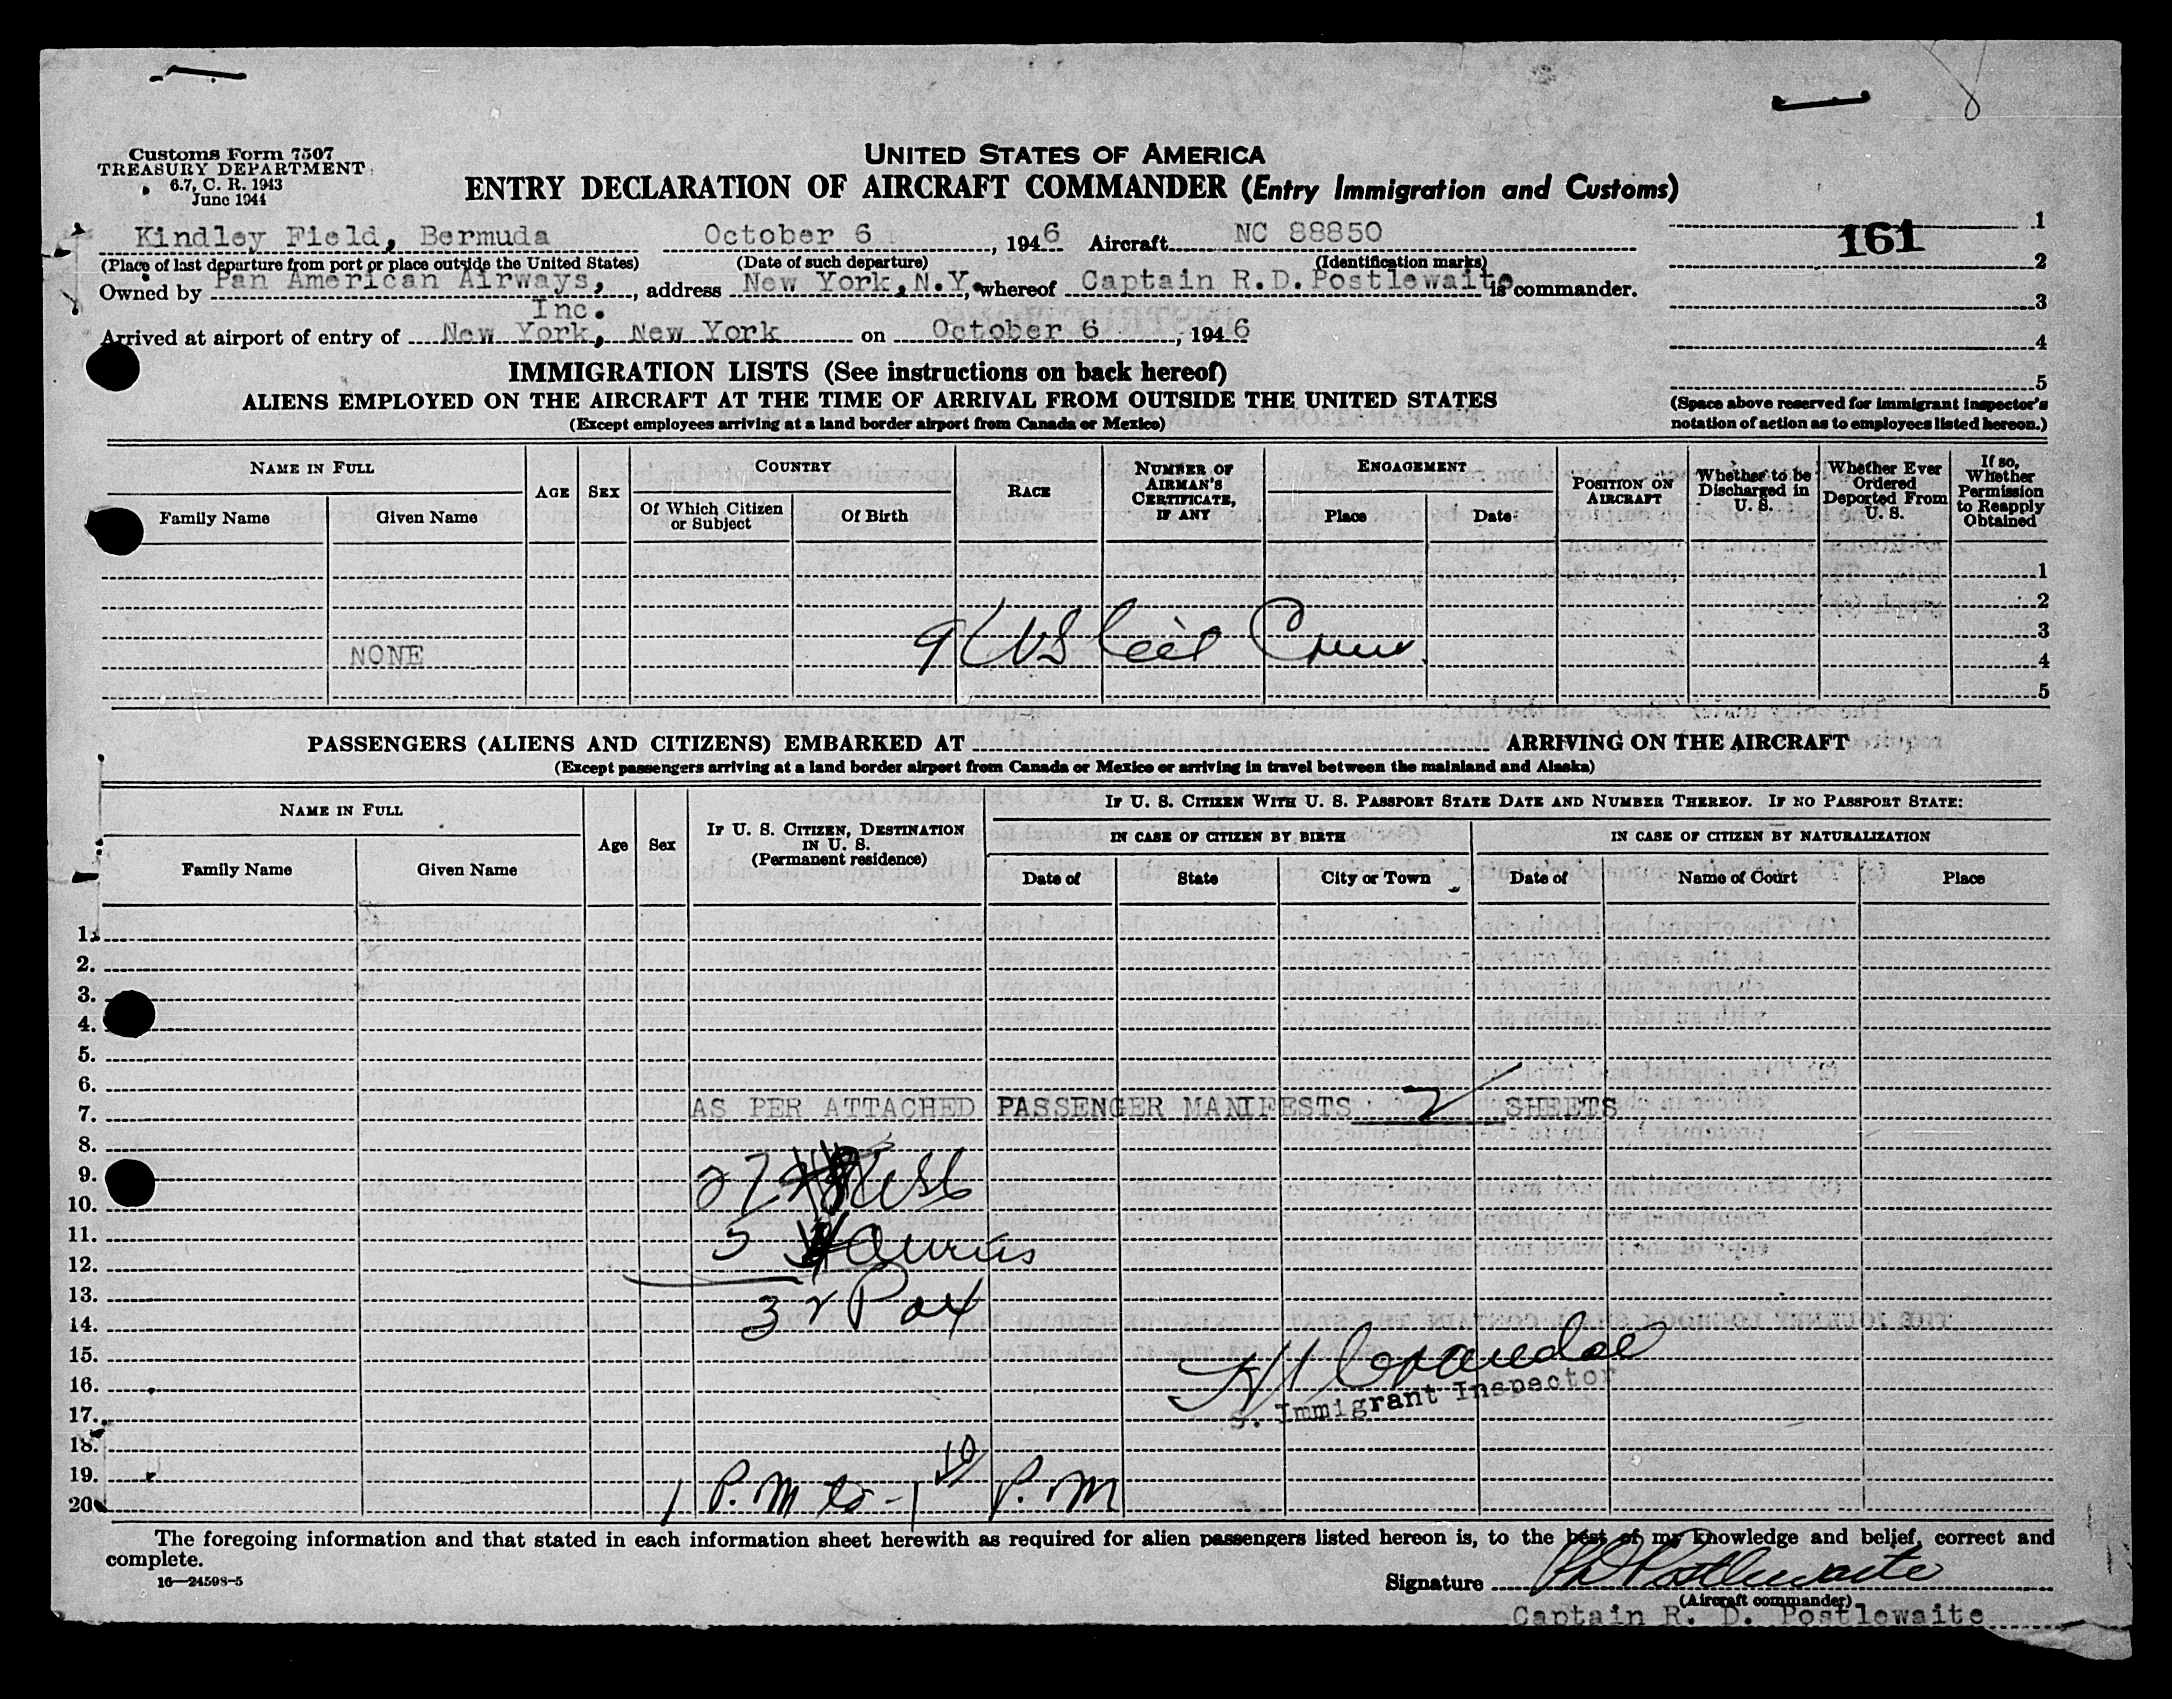 Customs Form 7507
TREASURY DEPARTMENT
6.7, C. R. 1943
June 1944
UNITED STATES OF AMERICA
ENTRY DECLARATION OF AIRCRAFT COMMANDER (Entry Immigration and Customs)
Kindley Field, Bermuda October 6, 1946 Aircraft NC 88850
(Place of last departure from port or place outside the United States) (Date of such departure) (Identification marks)
Owned by Pan American Airways, Inc., address New York, N.Y., whereof Captain R.D. Postlewaite is commander.
Arrived at airport of entry of New York, New York on October 6, 1946
161
1
2
3
4
5
(Space above reserved for immigrant inspector's notation of action as to employees listed hereon.)
IMMIGRATION LISTS (See instructions on back hereof)
ALIENS EMPLOYED ON THE AIRCRAFT AT THE TIME OF ARRIVAL FROM OUTSIDE THE UNITED STATES
(Except employees arriving at a land border airport from Canada or Mexico)
NAME IN FULL
Family Name Given Name
AGE SEX
COUNTRY
Of Which Citizen or Subject Of Birth
RACE
NUMBER OF AIRMAN'S CERTIFICATE, IF ANY
ENGAGEMENT
Place Date
POSITION ON AIRCRAFT
Whether to be Discharged in U. S.
Whether Ever Ordered Deported From U. S.
If so, Whether Permission to Reapply Obtained
1
2
3
NONE 9 US Crew 4
5
PASSENGERS (ALIENS AND CITIZENS) EMBARKED AT ARRIVING ON THE AIRCRAFT
(Except passengers arriving at a land border airport from Canada or Mexico or arriving in travel between the mainland and Alaska)
NAME IN FULL
Family Name Given Name
Age Sex
IF U. S. CITIZEN, DESTINATION IN U. S. (Permanent residence)
IF U. S. CITIZEN WITH U. S. PASSPORT STATE DATE AND NUMBER THEREOF. IF NO PASSPORT STATE:
IN CASE OF CITIZEN BY BIRTH IN CASE OF CITIZEN BY NATURALIZATION
Date of State City or Town Date of Name of Court Place
1.
2.
3.
4.
5.
6.
7. AS PER ATTACHED PASSENGER MANIFESTS 2 SHEETS
8.
9. 27
10.
11. 5
12.
13. 32 Pax
14.
15.
16. S. Immigrant Inspector
17.
18.
19. 1 P.M to - 1 10 P.M
20.
The foregoing information and that stated in each information sheet herewith as required for alien passengers listed hereon is, to the best of my knowledge and belief, correct and
complete.
16—24598-5
Signature RD Postlewaite
(Aircraft commander)
Captain R. D. Postlewaite